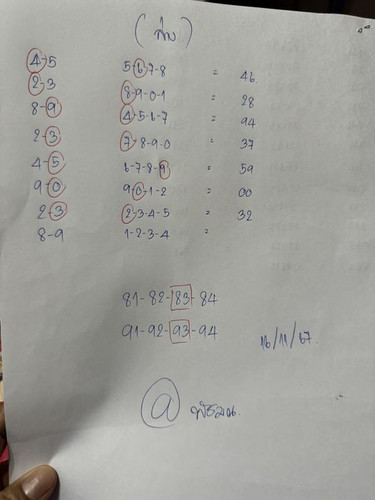 4-5 5-6-7-8 = 46
2-3 8-9-0-1 = 28
8-9 4-5-6-7 = 94
2-3 7-8-9-0 = 37
4-5 6-7-8-9 = 59
9-0 9-0-1-2 = 00
2-3 2-3-4-5 = 32
8-9 1-2-3-4 =
81-82-83-84
91-92-93-94
16/11/67
@